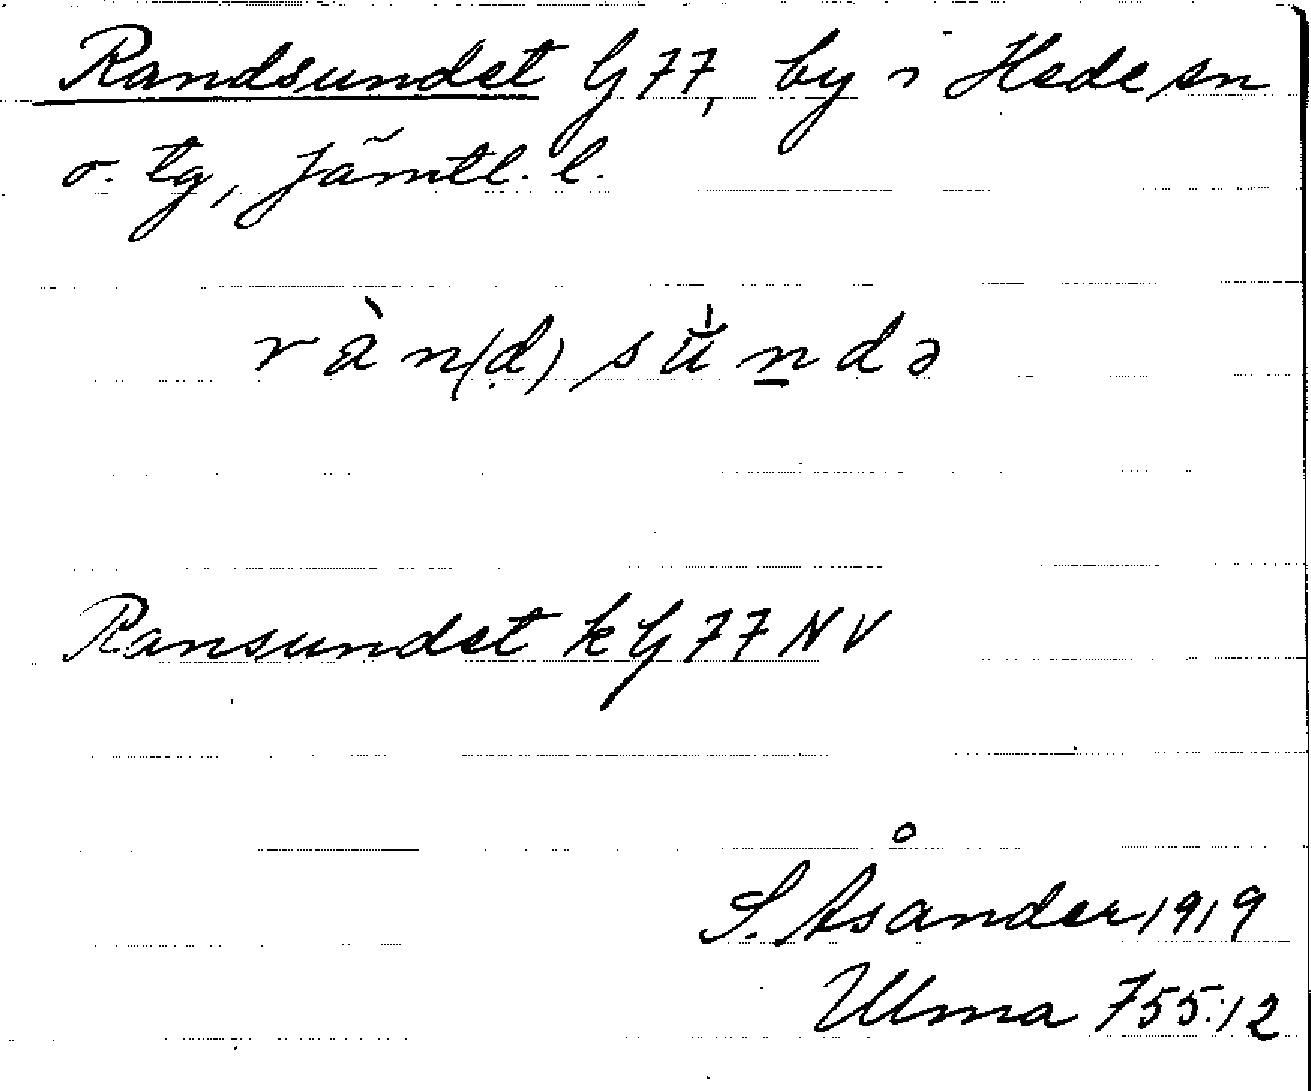 Randsundet G 77, by i Hede sn
o. tg, Jämtl. l.
ràn(d)sŭ̀n̲də
Ransundet k G 77 NV
S. Åsander 1919
Ulma 755:12